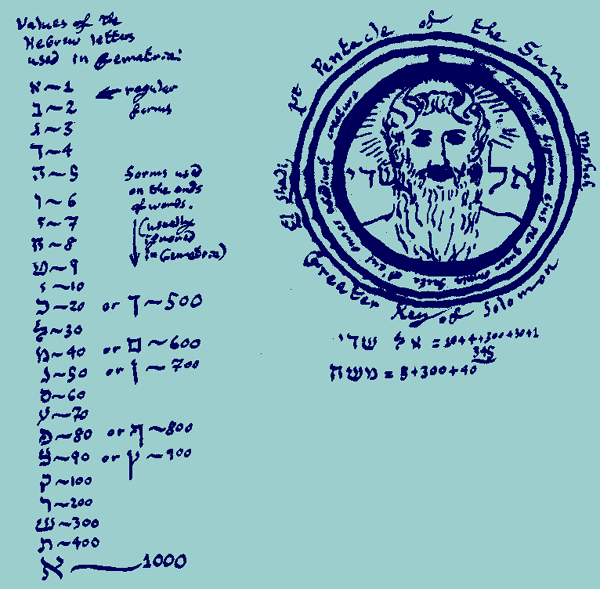 Values of the
Hebrew letters
used in Gematria:
א ~ 1
ב ~ 2
ג ~ 3
ד ~ 4
ה ~ 5
ו ~ 6
ז ~ 7
ח ~ 8
ט ~ 9
י ~ 10
כ ~ 20 or ך ~ 500
ל ~ 30
מ ~ 40 or ם ~ 600
נ ~ 50 or ן ~ 700
ס ~ 60
ע ~ 70
פ ~ 80 or ף ~ 800
צ ~ 90 or ץ ~ 900
ק ~ 100
ר ~ 200
ש ~ 300
ת ~ 400
א ~ 1000
← regular
forms
forms used
on the ends
of words.
(usually
ignored
in Gematria)
1st Pentacle of the Sun
El Shadi
Metatron
Greater Key of Solomon
אל שדי
אל שדי = 10+4+300+30+1
345
משה = 5+300+40